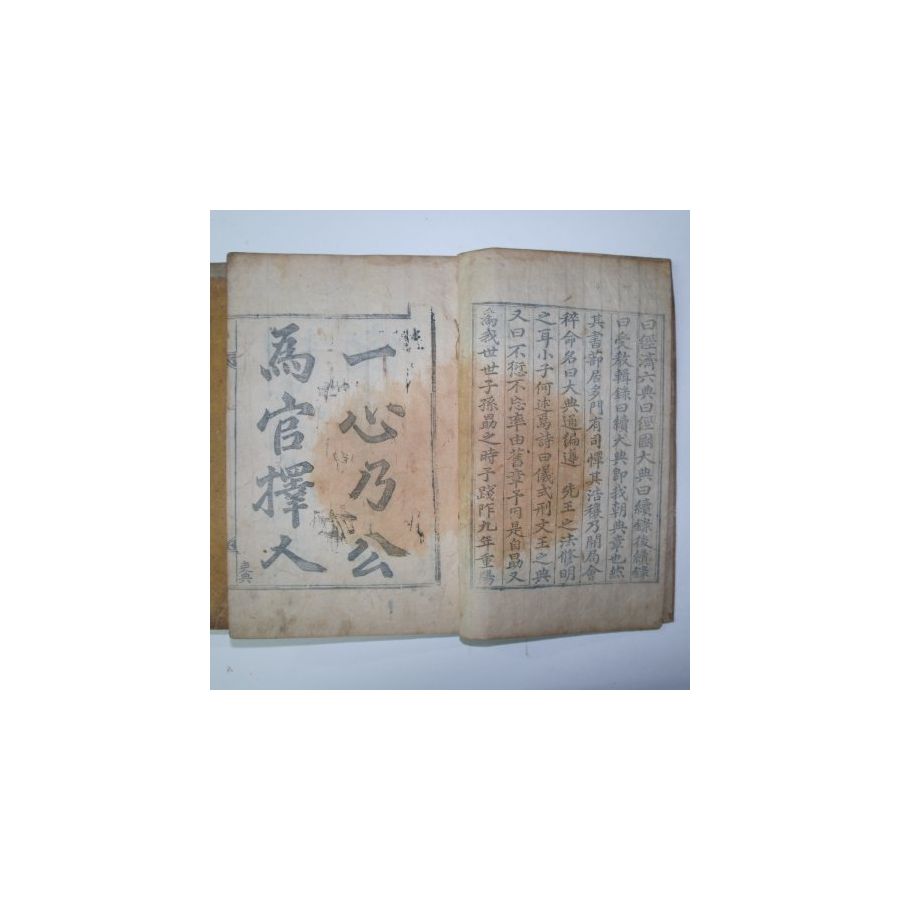 曰經濟六典曰經國大典曰續錄後續錄
曰受敎輯錄曰續大典卽我朝典章也然
其書節居多門有司憚其浩穰乃開局會
稡命名曰大典通編遵 先王之法修明
之耳小子何述焉詩曰儀式刑文王之典
又曰不愆不忘率由舊章予用是自勗又
爲我世世子孫勗之時予踐阼九年重陽
一心乃公
為官擇人
吏典